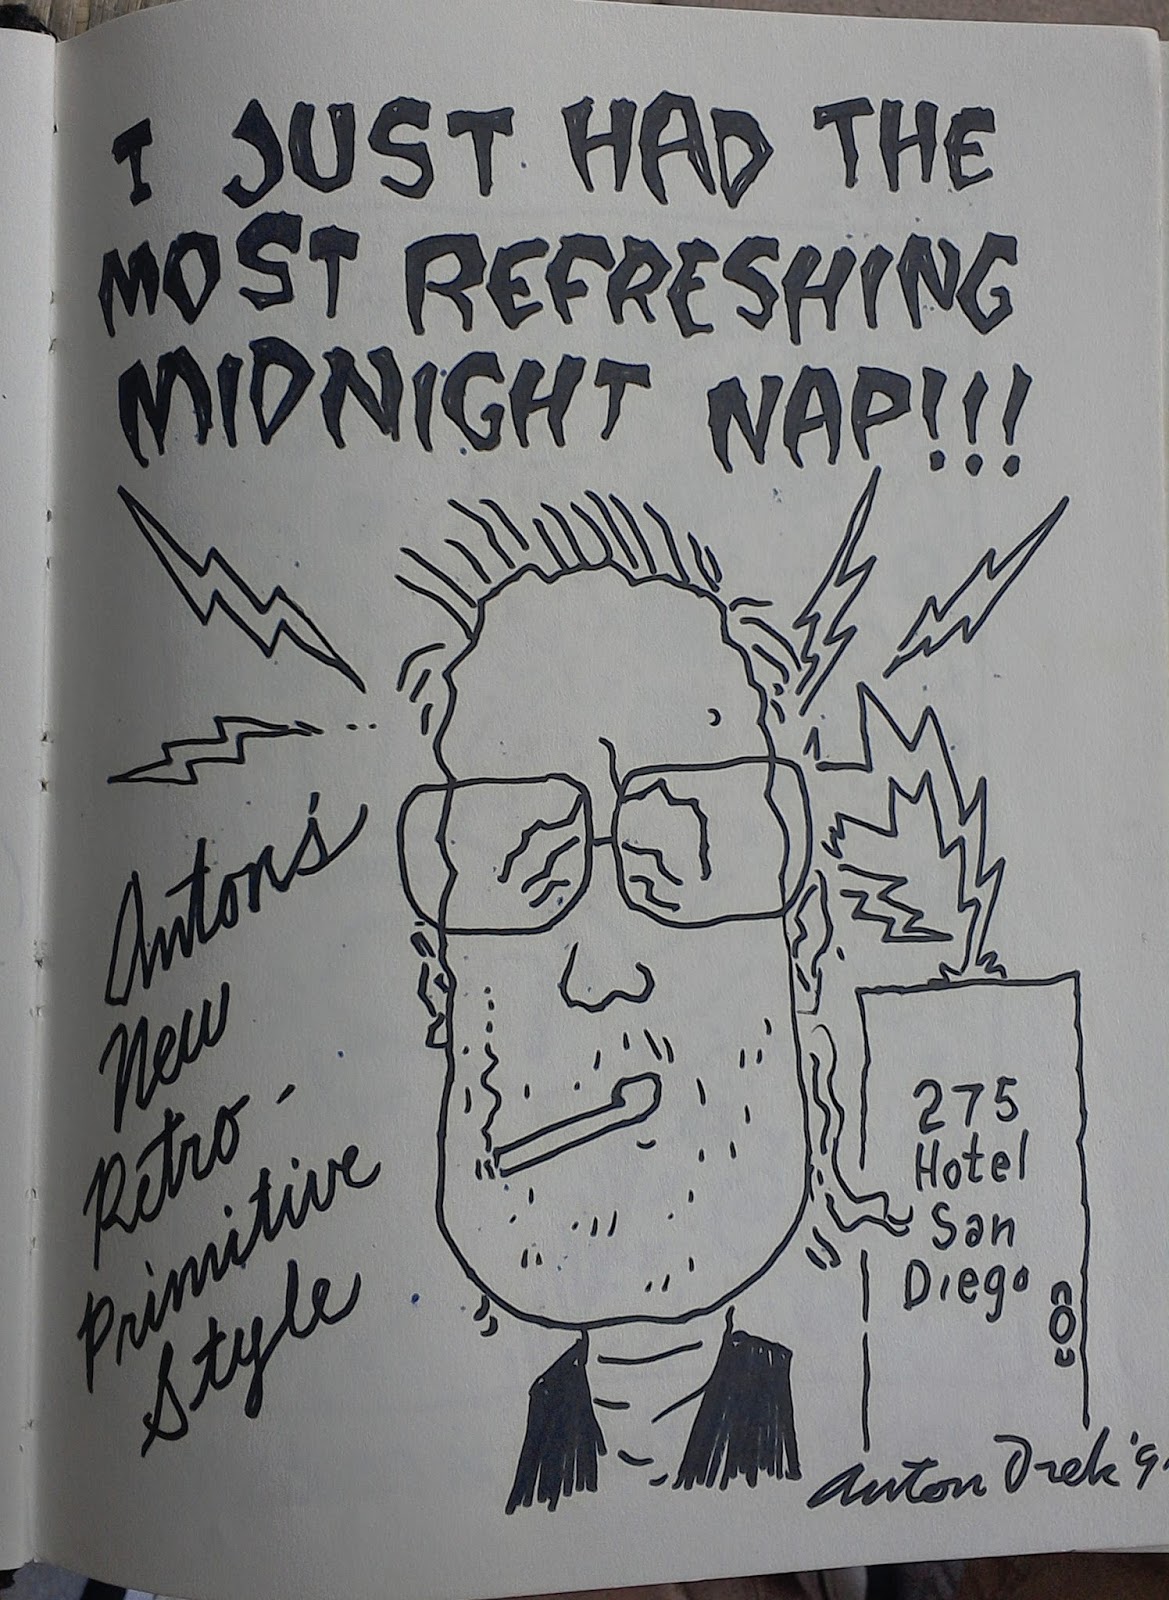 I JUST HAD THE
MOST REFRESHING
MIDNIGHT NAP!!!
Anton's
New
Retro-
Primitive
Style
275
Hotel
San
Diego
Anton Drek